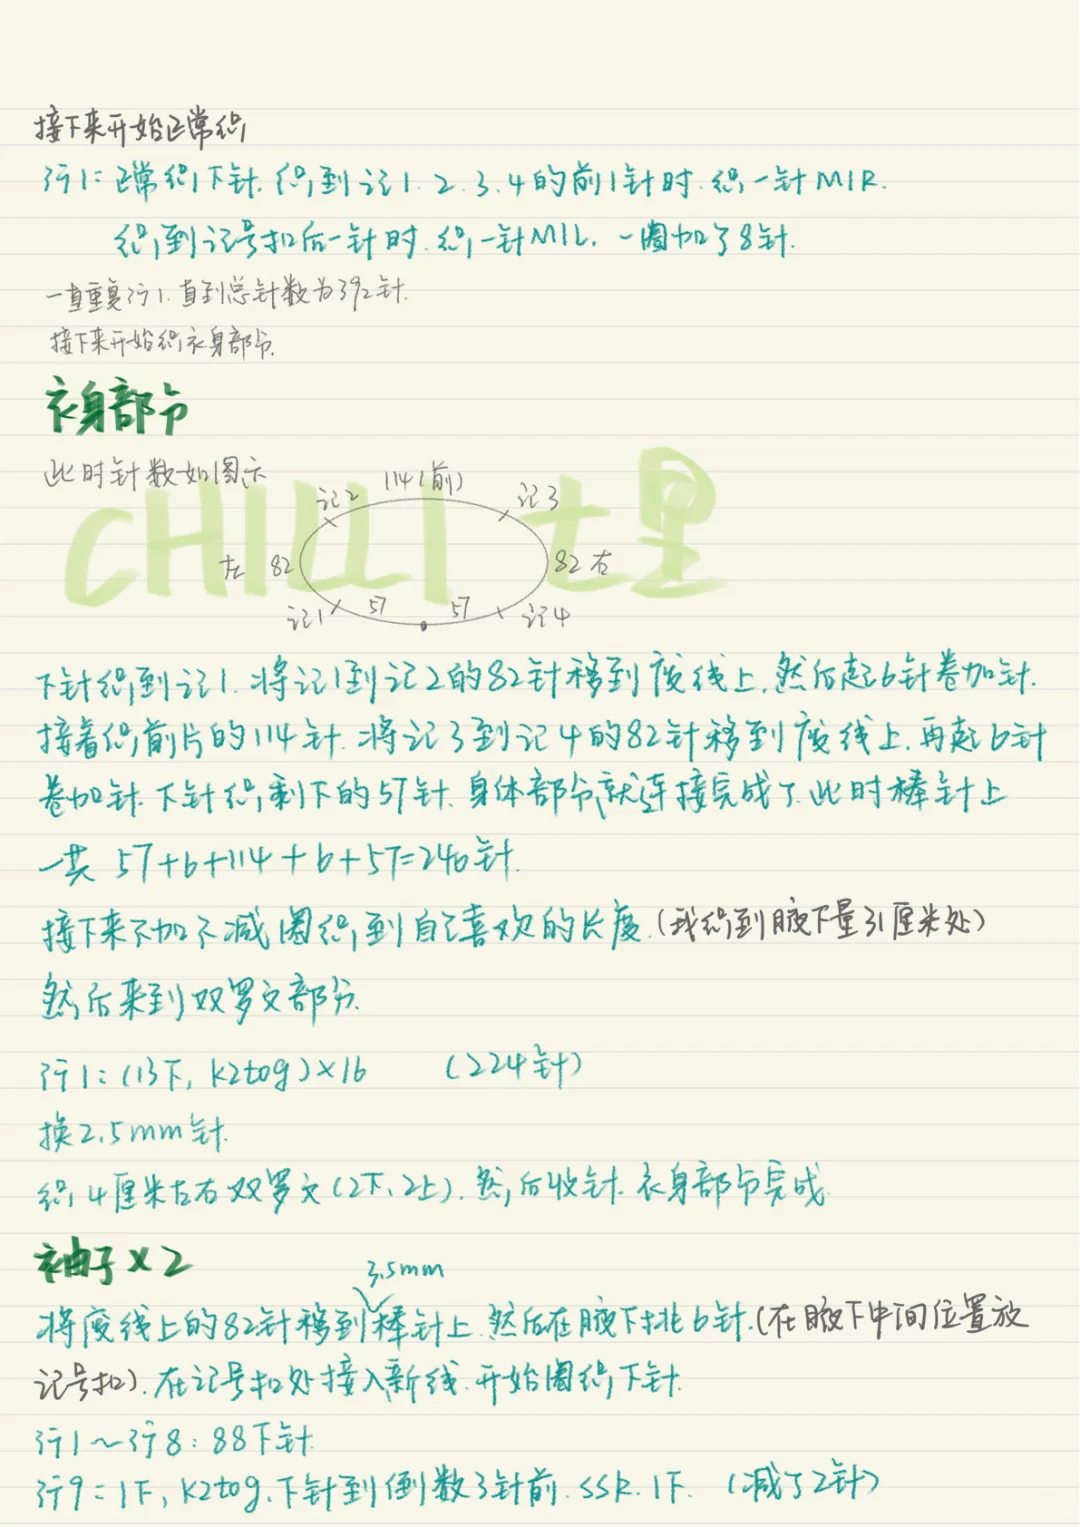 接下来开始正常织
行1: 正常织下针. 织到记1.2.3.4的前1针时. 织一针M1R.
织到记号扣后一针时. 织一针M1L. 一圈加了8针.
一直重复行1. 直到总针数为392针.
接下来开始织衣身部分.
衣身部分
此时针数如图示
CHILLI 七里
114(前)
记2
记3
左 82
82 右
记1
57
57
记4
下针织到记1. 将记1到记2的82针移到废线上. 然后起6针卷加针.
接着织前片的114针. 将记3到记4的82针移到废线上. 再起6针
卷加针. 下针织剩下的57针. 身体部分就连接完成了. 此时棒针上
一共 57+6+114+6+57=240针.
接下来不加不减圈织到自己喜欢的长度. (我织到腋下量31厘米处)
然后来到双罗文部分.
行1: (13下, k2tog)×16 (224针)
换2.5mm针.
织4厘米左右双罗文(2下、2上). 然后收针. 衣身部分完成.
袖子×2
3.5mm
将废线上的82针移到棒针上. 然后在腋下挑6针. (在腋下中间位置放
记号扣). 在记号扣处接入新线. 开始圈织下针.
行1~行8: 88下针
行9: 1下, k2tog. 下针到倒数3针前. SSK. 1下. (减了2针)